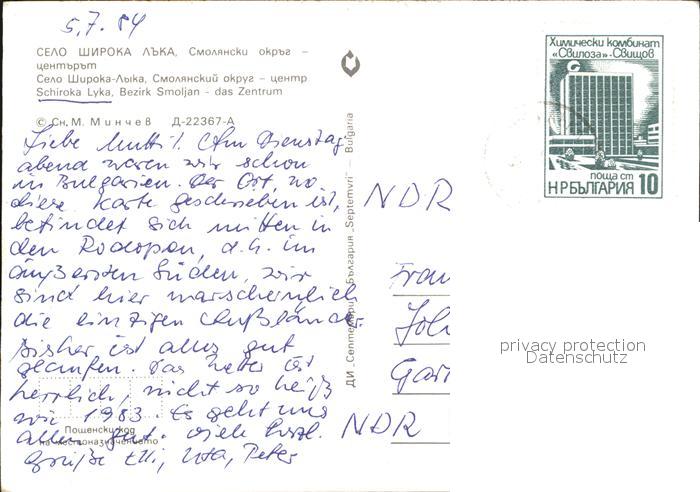 5.7.84
СЕЛО ШИРОКА ЛЪКА, Смолянски окръг –
центърът
Село Широка-Лыка, Смолянский округ – центр
Schiroka Lyka, Bezirk Smoljan - das Zentrum
© Сн. М. Минчев Д-22367-А
Liebe Mutti! Am Dienstag
abend waren wir schon
in Bulgarien. Der Ort, wo
diese Karte geschrieben ist,
befindet sich mitten in
den Rodopen, d.h. im
äußersten Süden, wir
sind hier warscheinlich
die einzigen Ausländer.
Bisher ist alles gut
gelaufen. Das Wetter ist
herrlich, nicht so heiß
wie 1983. Es geht uns
allen gut. Viele herzl.
Grüße Elli, Uta, Peter
Пощенски код
на местоназначението
ДИ „Септември" България „Septemvri" Bulgaria
Химически комбинат
«Свилоза»-Свищов
поща ст
НР БЪЛГАРИЯ 10
NDR
Frau
Joh
Gar
NDR
privacy protection
Datenschutz